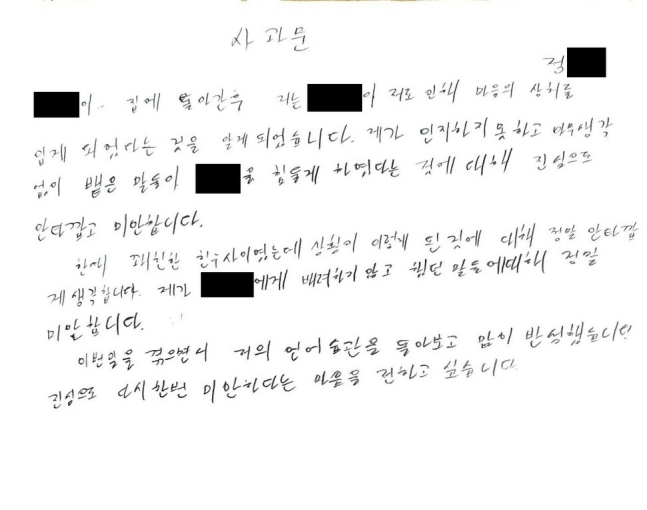 사과문
정
이 집에 돌아간후 저는 이 저로 인해 마음의 상처를
입게 되었다는 것을 알게 되었습니다. 제가 인지하지 못하고 아무생각
없이 뱉은 말들이 을 힘들게 하였다는 것에 대해 진심으로
안타깝고 미안합니다.
한때 친한 친구사이였는데 상황이 이렇게 된것에 대해 정말 안타깝
게 생각합니다. 제가 에게 배려하지 않고 했던 말들에대해 정말
미안합니다.
이번일을 겪으면서 저의 언어습관을 돌아보고 많이 반성했습니다
진심으로 다시한번 미안하다는 마음을 전하고 싶습니다.